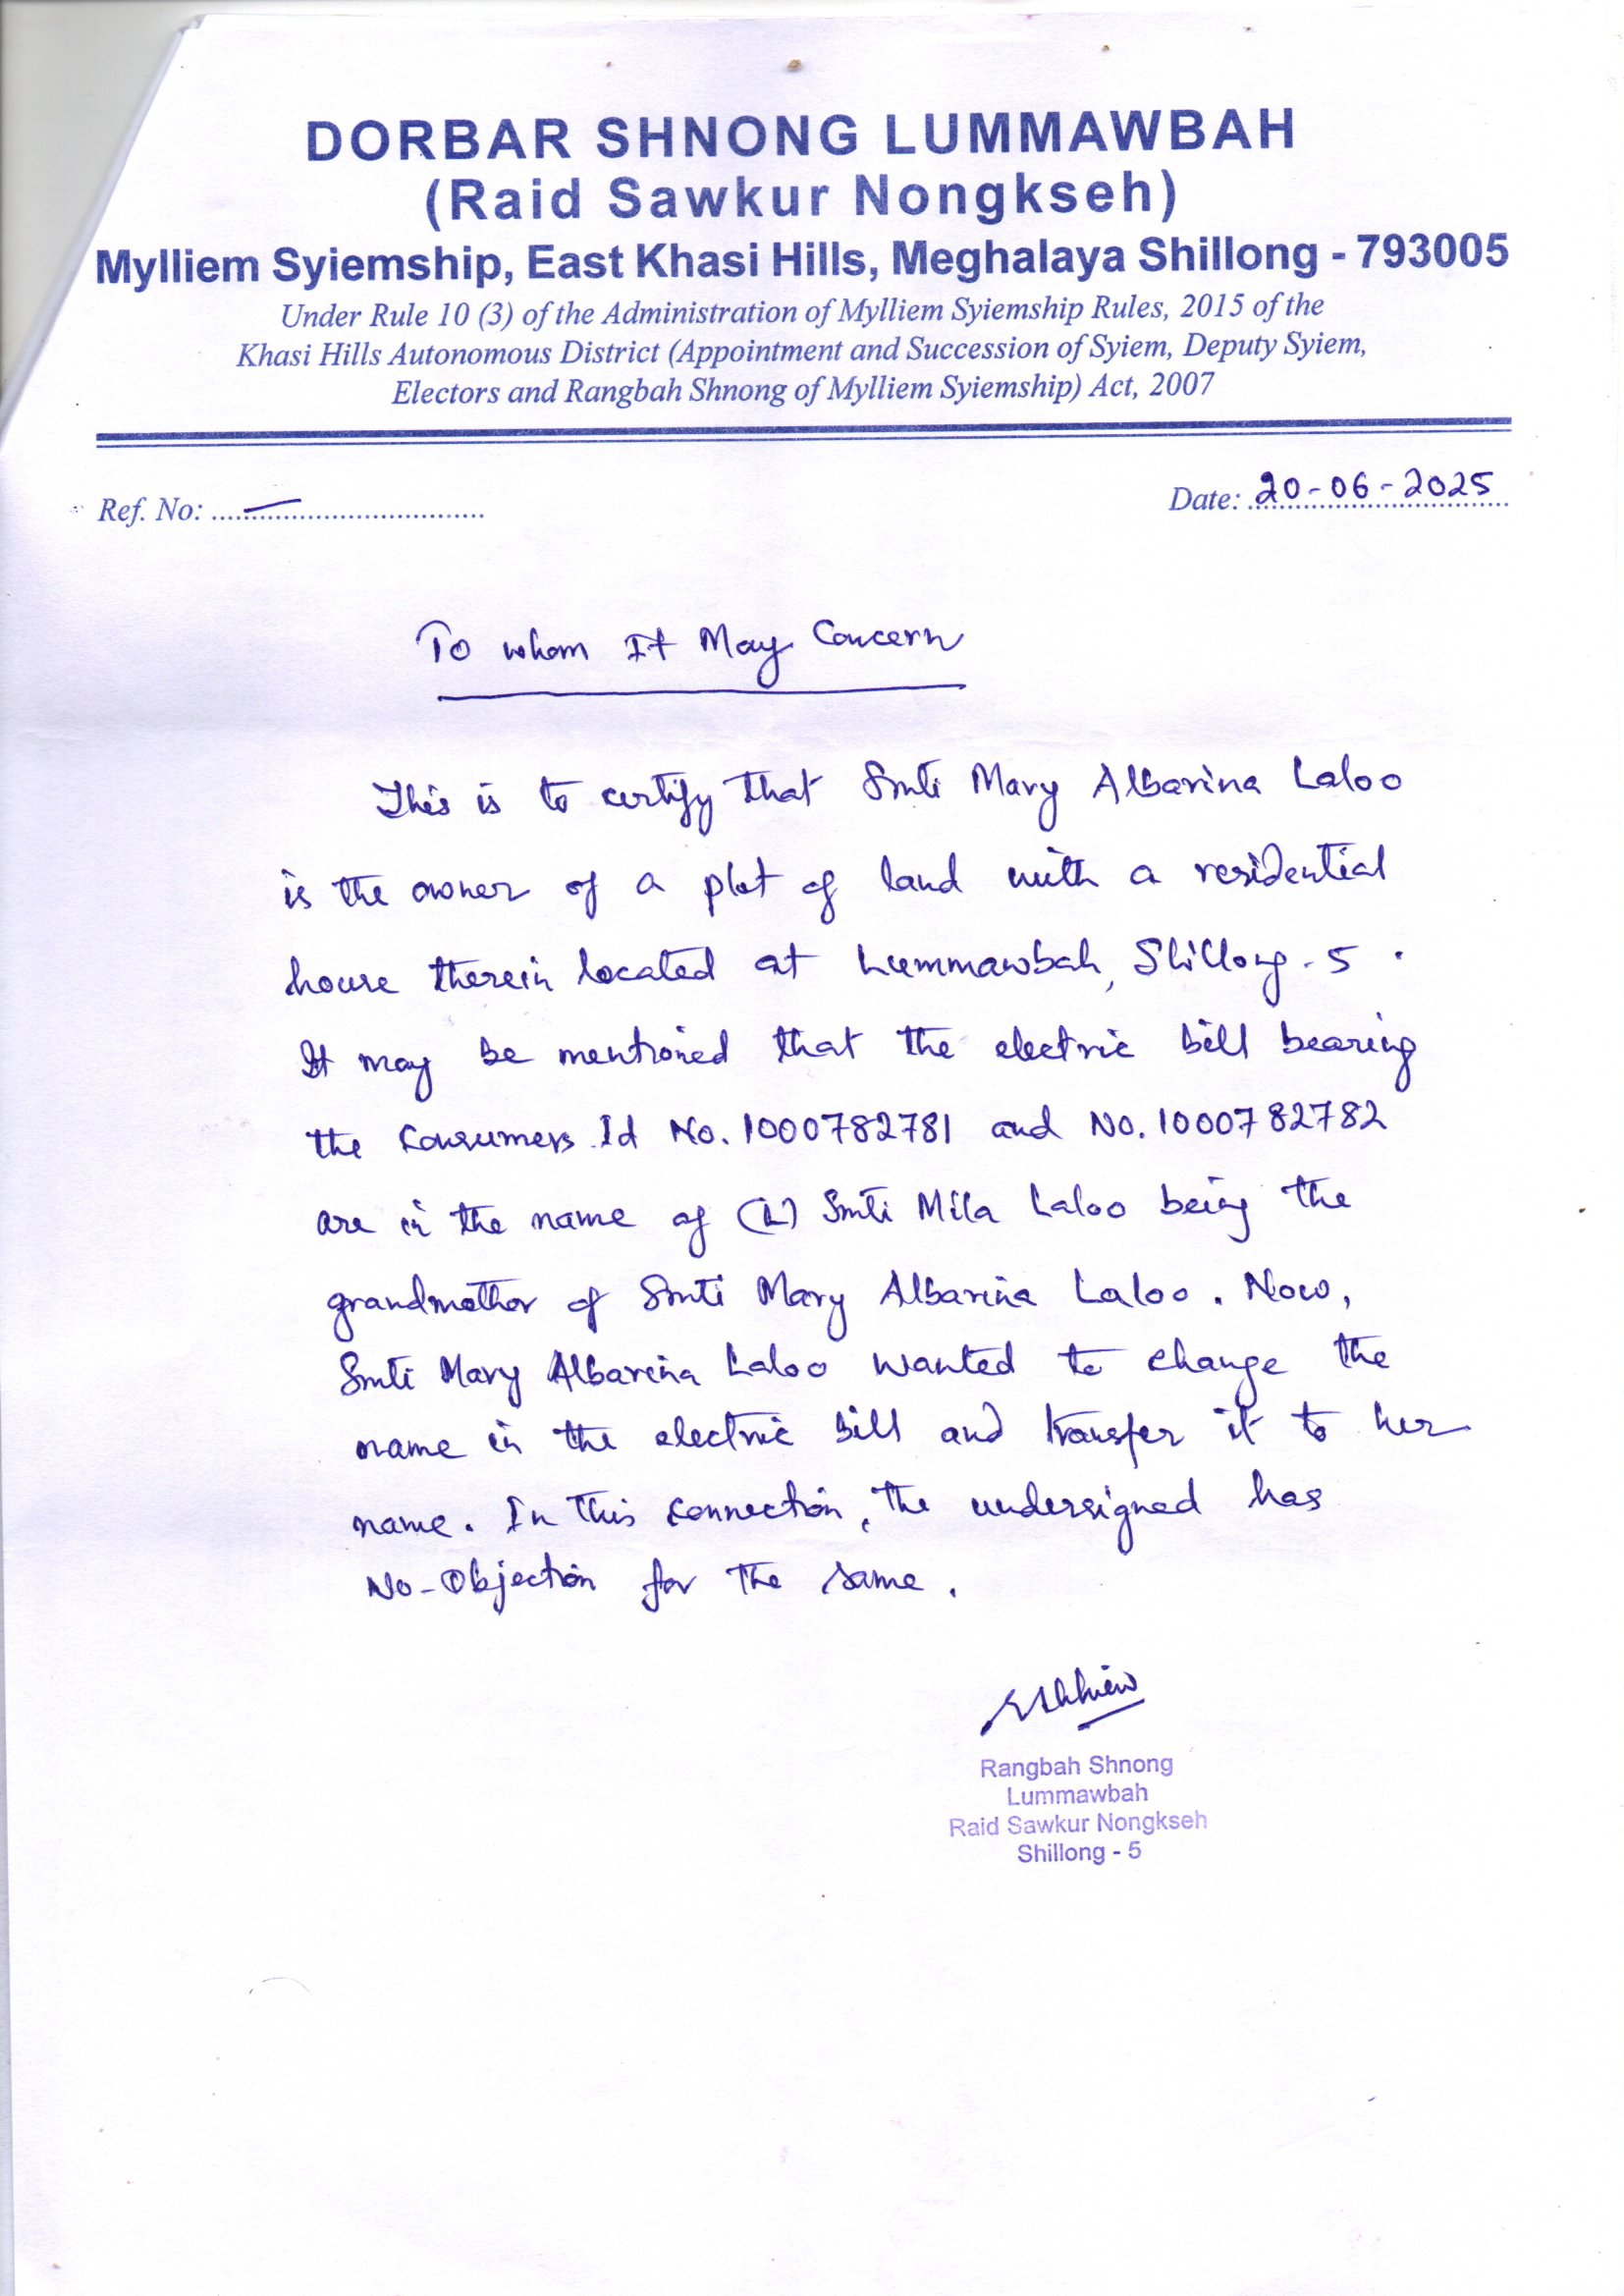 DORBAR SHNONG LUMMAWBAH
(Raid Sawkur Nongkseh)
Mylliem Syiemship, East Khasi Hills, Meghalaya Shillong - 793005
Under Rule 10 (3) of the Administration of Mylliem Syiemship Rules, 2015 of the
Khasi Hills Autonomous District (Appointment and Succession of Syiem, Deputy Syiem,
Electors and Rangbah Shnong of Mylliem Syiemship) Act, 2007
Ref. No: ..................................
Date: 20-06-2025
To whom It May Concern
This is to certify that Smti Mary Albarina Laloo
is the owner of a plot of land with a residential
house therein located at Lummawbah, Shillong-5.
It may be mentioned that the electric bill bearing
the Consumers Id No. 1000782781 and No. 1000782782
are in the name of (L) Smti Mila Laloo being the
grandmother of Smti Mary Albarina Laloo. Now,
Smti Mary Albarina Laloo wanted to change the
name in the electric bill and transfer it to her
name. In this connection, the undersigned has
No-Objection for the same.
Rangbah Shnong
Lummawbah
Raid Sawkur Nongkseh
Shillong - 5